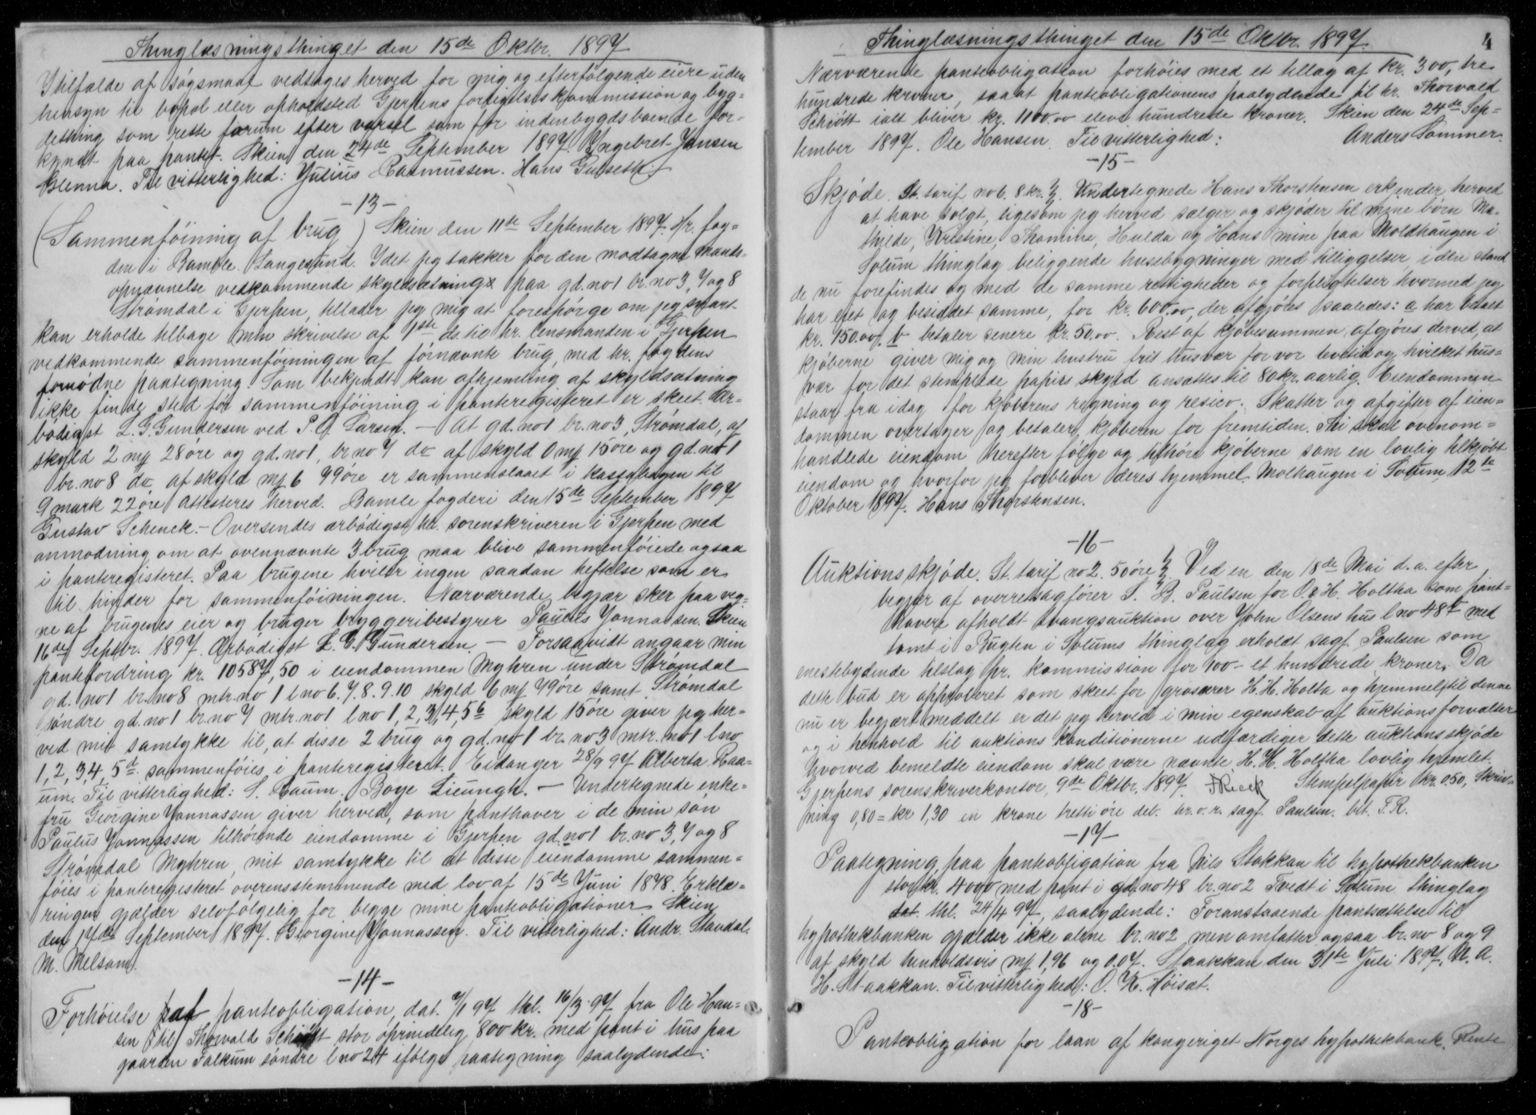 Thinglæsningsthinget den 15de Oktbr. 1897
I tilfælde af søgsmaal vedtages herved for mig og efterfølgende eiere uden
hensyn til bopæl eller opholdsted Gjerpens forligelseskommission og byg-
dething som rette forum efter varsel som for indenbygdsboende for-
kyndt paa pantet. Skien den 24de September 1897. Yngebret Jansen
Blenna. Til vitterlighed: Julius Rasmussen. Hans Gulseth
-13-
(Sammenføining af brug) Skien den 11te September 1897. Hr. fog-
den i Bamle. Langesund. Idet jeg takker for den modtagne mands-
opnævnelse vedkommende skyldsætning paa gd. no 1 br. no 3, 7 og 8
Strømdal i Gjerpen, tillader jeg mig at forespørge om jeg snart
kan erholde tilbage min skrivelse af 1ste ds. til hr. lensmanden i Gjerpen
vedkommende sammenføiningen af førnævnte brug, med hr. fogdens
fornødne paategning. Som bekjendt kan afhjemling af skyldsætning
ikke finde sted før sammenføining i panteregisteret er skeet. Ær-
bødigst L. G. Gundersen ved P. G. Larsen. — At gd. no 1 br. no 3, Strømdal, af
skyld 2 mk 28 øre og gd. no 1, br. no 7 do af skyld 0 mk 15 øre og gd. no 1
br. no 8 do af skyld mk 6 79 øre er sammenslaaet i kassabogen til
9 mark 22 øre attesteres herved. Bamle fogderi den 15de September 1897
Gustav Schenck. — Oversendes ærbødigst hr. sorenskriveren i Gjerpen med
anmodning om at ovennævnte 3 brug maa blive sammenføiede ogsaa
i panteregisteret. Paa brugene hviler ingen saadan heftelse som er
til hinder for sammenføiningen. Nærværende begjær sker paa veg-
ne af brugenes eier og bruger bryggeribestyrer Paulus Jonnassen. Skien
16de Septbr. 1897. Ærbødigst L. G. Gundersen. — Forsaavidt angaar min
pantefordring kr. 10587,50 i eiendommen Myhren under Strømdal
gd. no 1 br. no 8 mtr. no 1 l no 6. 7. 8. 9. 10 skyld 6 mk 79 øre samt Strømdal
søndre gd. no 1 br. no 7 mtr. no 1 l no 1, 2, 3, 4, 5 b skyld 15 øre giver jeg her-
ved mit samtykke til, at disse 2 brug og gd. no 1 br. no 3 mtr. no 1 l no
1, 2, 3, 4, 5 d sammenføies i panteregisteret. Eidanger 28/9 97 Alberta Raa-
um. Til vitterlighed: S. Raum. Boye Lieungh. — Undertegnede enke-
fru Georgine Jonnassen giver herved, som panthaver i de min søn
Paulus Jonnassen tilhørende eiendomme i Gjerpen gd. no 1 br. no 3, 7 og 8
Strømdal Myhren, mit samtykke til at disse eiendomme sammen-
føies i panteregisteret overensstemmende med lov af 15de Juni 1878. Erklæ-
ringen gjælder selvfølgelig for begge mine panteobligationer. Skien
den 17de September 1897. Georgine Jonnassen. Til vitterlighed: Andr. Stavdal.
M. Melsom.
-14-
Forhøielse paa panteobligation, dat. 7/1 97 thl. 16/3 97 fra Ole Han-
sen til Thorvald Schiøtt stor oprindelig 800 kr. med pant i hus paa
gaarden Falkum søndre l no 24 ifølge paategning saalydende:
Thinglæsningsthinget den 15de Oktbr. 1897 4
Nærværende panteobligation forhøies med et tillæg af kr. 300, tre
hundrede kroner, saa at panteobligationens paalydende til hr. Thorvald
Schiøtt ialt bliver kr. 1100.00 eleve hundrede kroner. Skien den 24de Sep-
tember 1897. Ole Hansen. Til vitterlighed: Anders Sommer.
-15-
Skjøde. St. tarif no 6. 8 kr. Undertegnede Hans Thorstensen erkjender herved
at have solgt, ligesom jeg herved sælger og skjøder til mine børn Ma-
thilde, Kristine, Thomine, Hulda og Hans mine paa Moldhaugen i
Solum thinglag beliggende husebygninger med tilliggelser i den stand
de nu forefindes og med de samme rettigheder og forpligtelser hvormed jeg
har eiet og besiddet samme, for kr. 600,00, der afgjøres saaledes: a har betalt
kr. 150.00, b betaler senere kr. 50.00. Rest af kjøbesummen afgjøres derved, at
kjøberne giver mig og min hustru frit husvær for vor levetid og hvilket hus-
vær for det stemplede papirs skyld ansættes til 80 kr. aarlig. Eiendommen
staar fra idag for kjøberens regning og resico. Skatter og afgifter af eien-
dommen overtager og betaler kjøberen for fremtiden. Thi skal ovenom-
handlede eiendom herefter følge og tilhøre kjøberne som en lovlig tilkjøbt
eiendom og hvorfor jeg forbliver deres hjemmel. Molhaugen i Solum, 12te
Oktober 1897. Hans Thorstensen.
-16-
Auktionsskjøde. St. tarif no 2. 50 øre. Ved en den 18de Mai d. a. efter
begjær af overretssagfører S. B. Paulsen for O. & H. Holtha som pant-
havere afholdt tvangsauktion over John Olsens hus l no 48 t med
tomt i Rugtvn i Solums thinglag erholdt sagf. Paulsen som
enestebydende tilslag pr. kommission for 100 – et hundrede kroner. Da
dette bud er approberet som skeet for grosserer H. H. Holta og hjemmel til denne
nu er begjært meddelt er det jeg herved i min egenskab af auktionsforvalter
og i henhold til auktionskonditionerne udfærdiger dette auktionsskjøde
hvorved bemeldte eiendom skal være nævnte H. H. Holtha lovlig hjemlet.
Gjerpens sorenskriverkontor, 9de Oktbr. 1897. Stempelpapir kr. 0.50, Skriv-
ning 0,80 = kr 1,30 en krone tretti øre det. hr. o. r. sagf. Paulsen. bet. S. R.
-17-
Paategning paa panteobligation fra Nils Stokkan til hypothekbanken
stor kr. 4000 med pant i gd. no 48 br. no 2 Tvedt i Solum thinglag
dat. thl. 24/4 97, saalydende: Foranstaaende pantsættelse til
hypothekbanken gjælder ikke alene br. no 2 men omfatter ogsaa br. no 8 og 9
af skyld henholdsvis mk 1,96 og 0.07. Staakkan den 31te Juli 1897. N. A.
H. Staakkan. Til vitterlighed: O. K. Høisæt.
-18-
Panteobligation for laan af kongeriget Norges hypothekbank. Rente